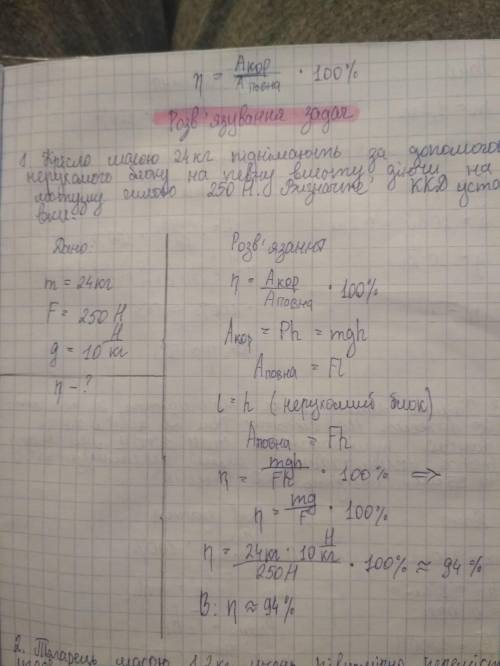 η = Aкор / Aповна · 100%
Розв'язування задач
1. Крісло масою 24 кг піднімають за допомогою
нерухомого блоку на певну висоту, діючи на
мотузку силою 250 Н. Визначте ККД уста
вки.
Дано:
m = 24 кг
F = 250 Н
g = 10 Н/кг
η - ?
Розв'язання
η = Aкор / Aповна · 100%
Aкор = Ph = mgh
Aповна = Fl
l = h (нерухомий блок)
Aповна = Fh
η = mgh / Fh · 100% =>
η = mg / F · 100%
η = 24кг · 10 Н/кг / 250Н · 100% ≈ 94%
В: η ≈ 94%
2. масою 1,2 кг